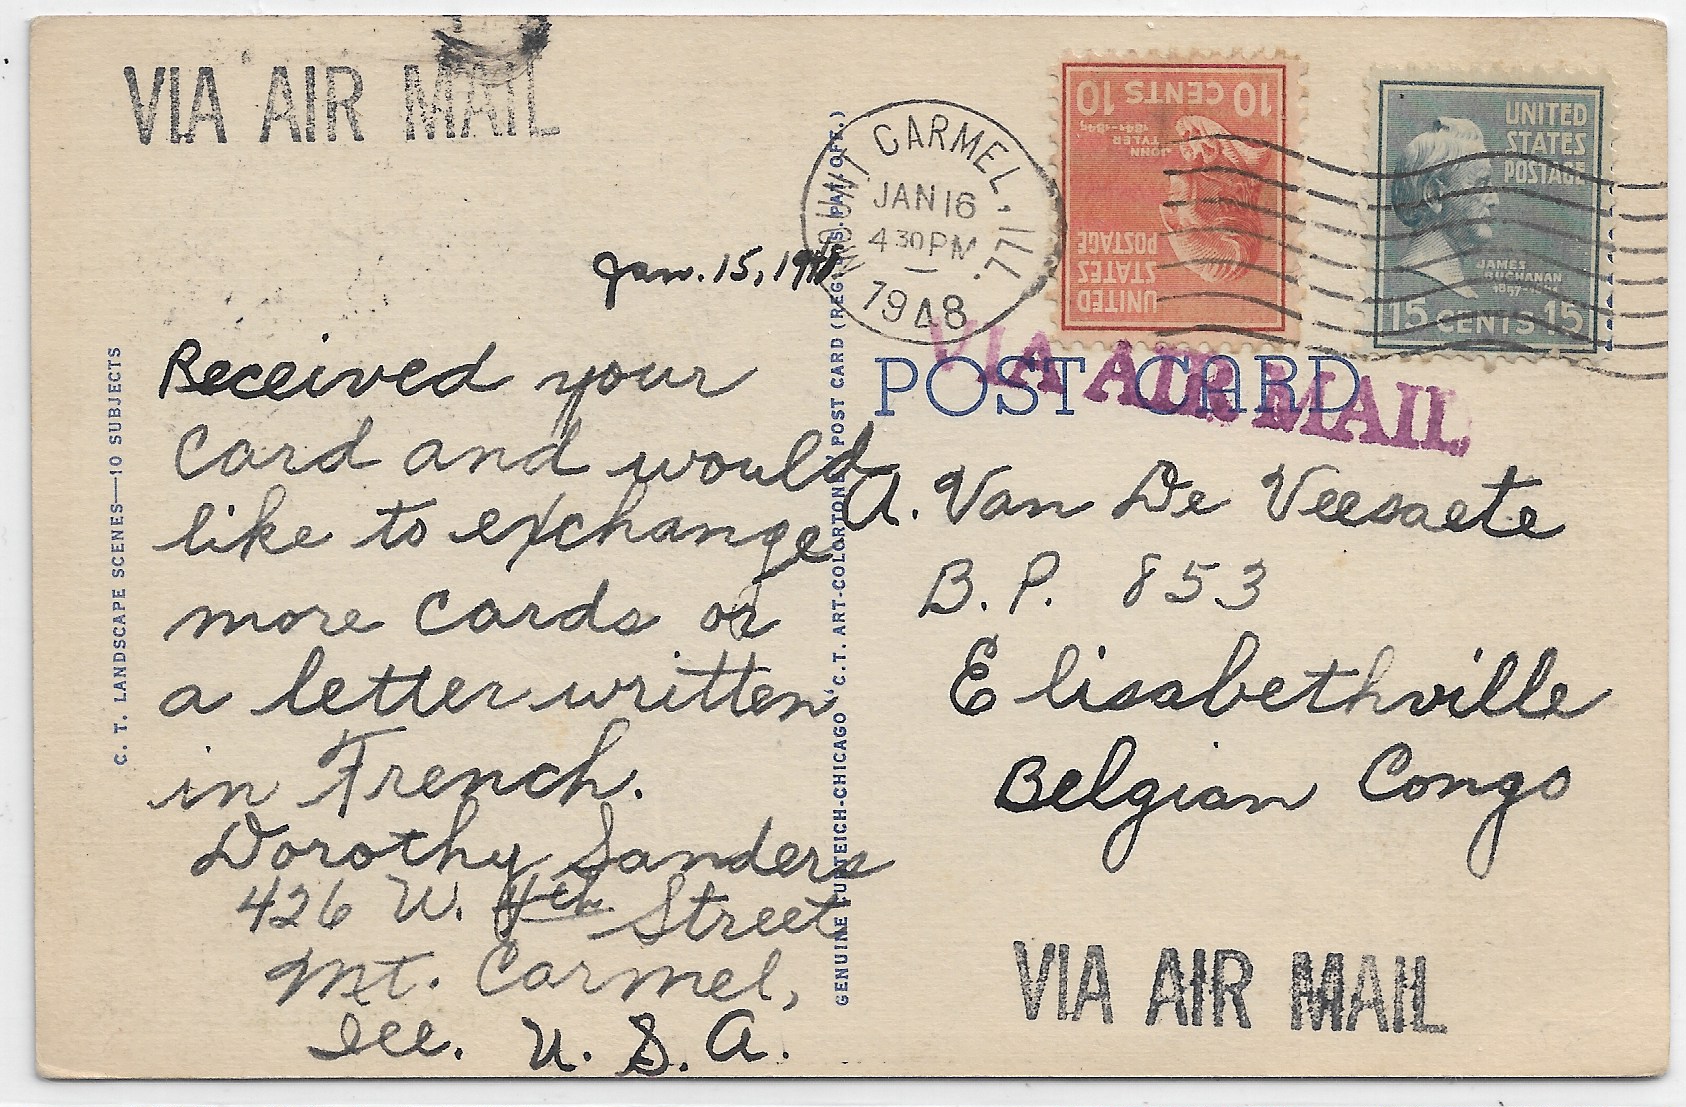 VIA AIR MAIL
Jan. 15, 1948
Received your
card and would
like to exchange
more cards or
a letter written
in French.
Dorothy Sanders
426 W. 4th Street
Mt. Carmel,
Ill. U. S. A.
C. T. LANDSCAPE SCENES—10 SUBJECTS
GENUINE CURTEICH-CHICAGO "C. T. ART-COLORTONE" POST CARD (REG. U.S. PAT. OFF.)
MOUNT CARMEL, ILL.
JAN 16
4 30 PM
1948
10 CENTS 10
JOHN
TYLER
1841-1845
UNITED
STATES
POSTAGE
UNITED
STATES
POSTAGE
JAMES
BUCHANAN
1857-1861
15 CENTS 15
VIA AIR MAIL
POST CARD
A. Van De Veesaete
B. P. 853
Elisabethville
Belgian Congo
VIA AIR MAIL